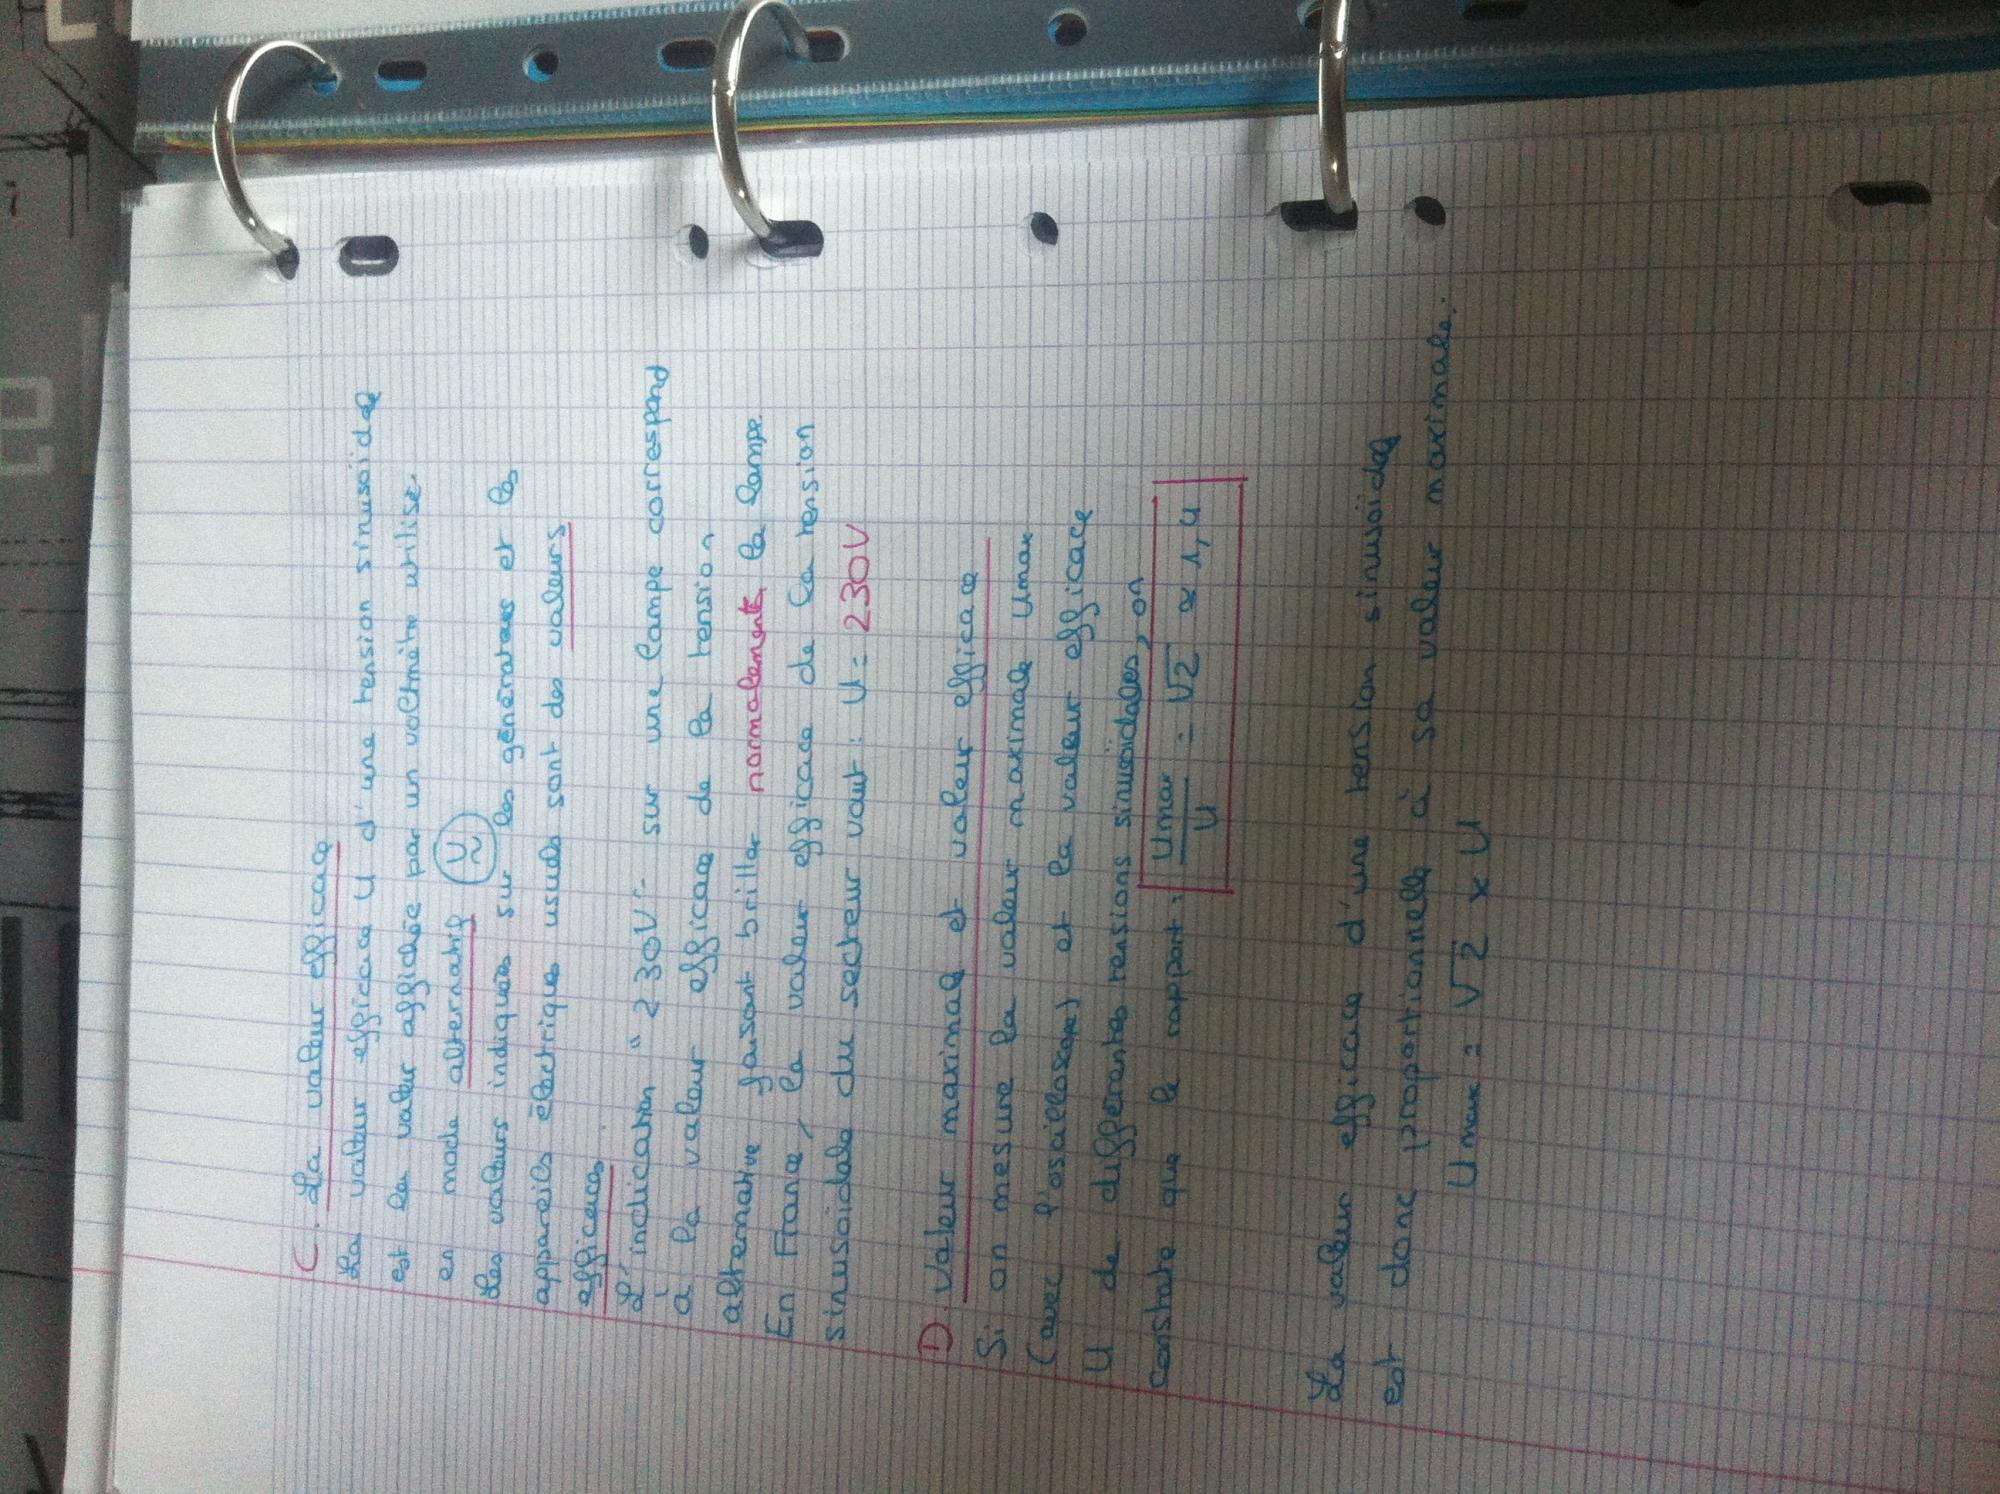 C. La valeur efficace
La valeur efficace U d'une tension sinusoïdale
est la valeur affichée par un voltmètre utilisé
en mode alternatif V~
Les valeurs indiquées sur les générateurs et les
appareils électriques usuels sont des valeurs
efficaces.
L'indication "230V" sur une lampe correspond
à la valeur efficace de la tension
alternative faisant briller normalement la lampe.
En France, la valeur efficace de la tension
sinusoidale du secteur vaut : U = 230V
D. Valeur maximale et valeur efficace
Si on mesure la valeur maximale Umax
(avec l'oscilloscope) et la valeur efficace
U de différentes tensions sinusoïdales, on
constate que le rapport : Umax/U = √2 ≈ 1,4
La valeur efficace d'une tension sinusoïdale
est donc proportionnelle à sa valeur maximale.
Umax = √2 × U